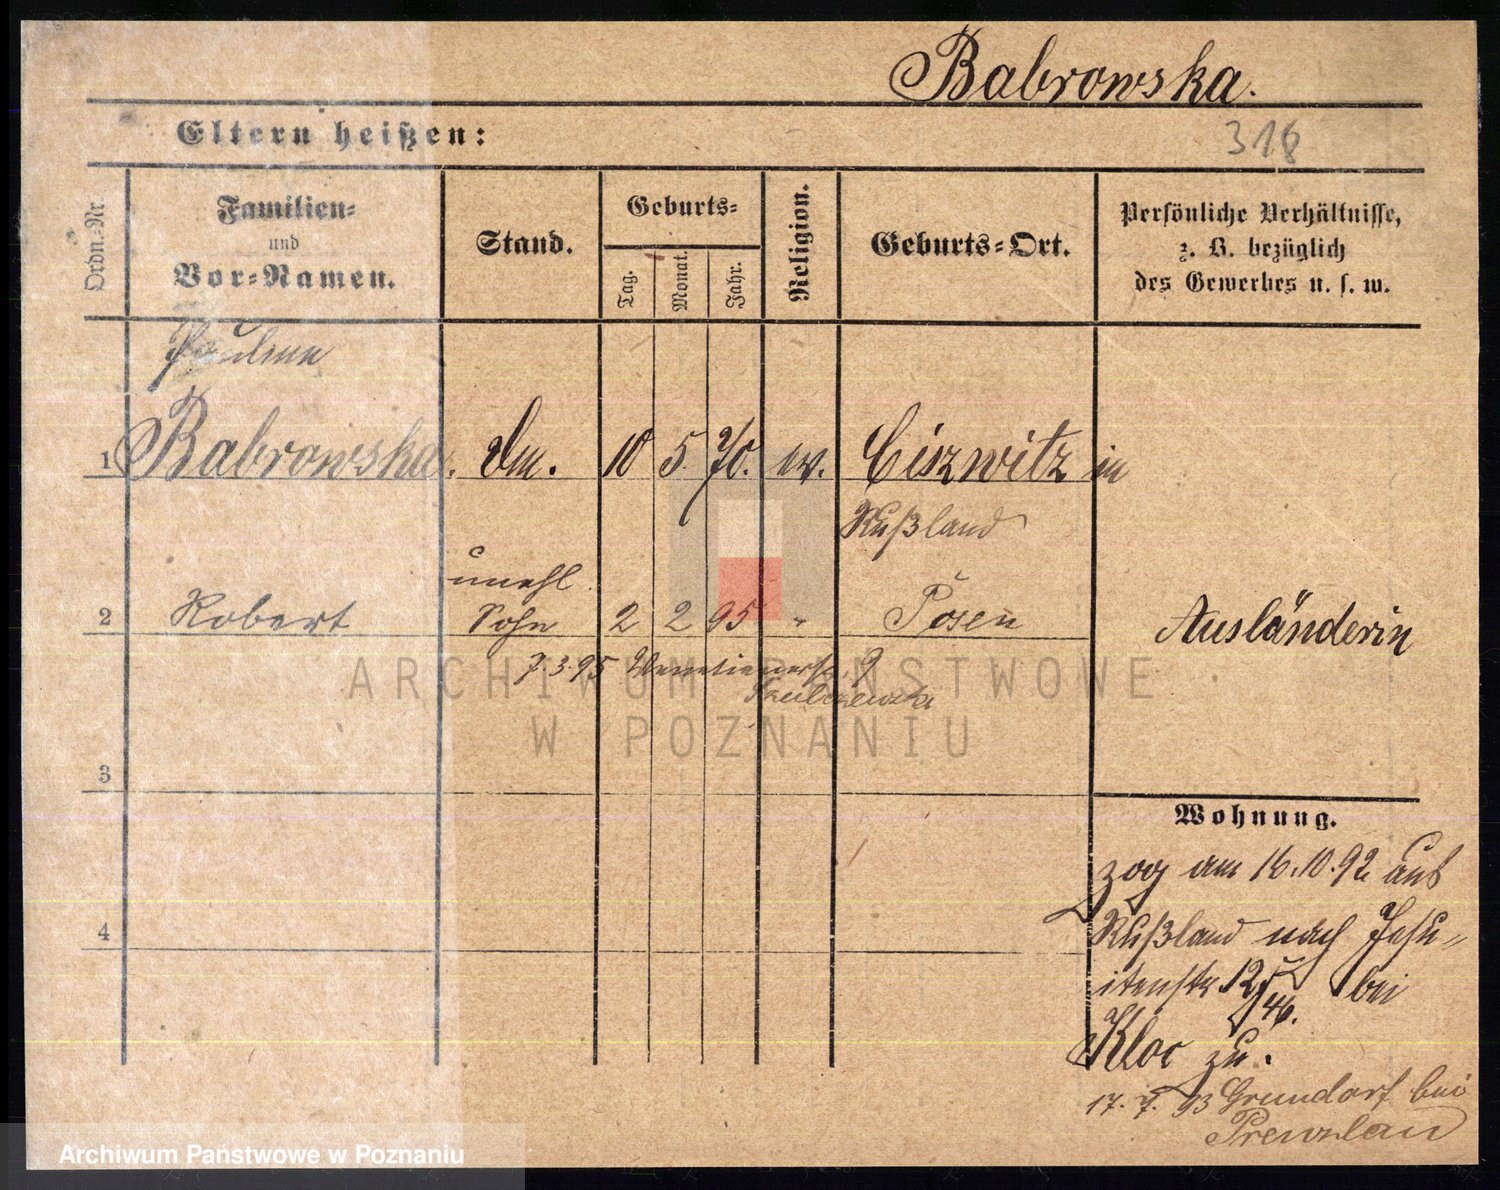 Babrowska.
Eltern heißen:
318
Ordn.-Nr.
Familien-
und
Vor-Namen.
Stand.
Geburts-
Tag.
Monat.
Jahr.
Religion.
Geburts-Ort.
Persönliche Verhältnisse,
z. B. bezüglich
des Gewerbes u. s. w.
Pauline
1 Babrowska. 10 5. 70. Ciszwitz in
Rußland
unehl.
2 Robert Sohn 2 2 95 " Posen
Ausländerin
7.3.95 9
ARCHIWUM PAŃSTWOWE
W POZNANIU
3
Wohnung.
zog am 16.10.92 aus
4
Rußland nach Jesu-
itenstr. 12 bei
Kloc zu.
17. 7. 93 Grundorf bei
Prenzlau
Archiwum Państwowe w Poznaniu